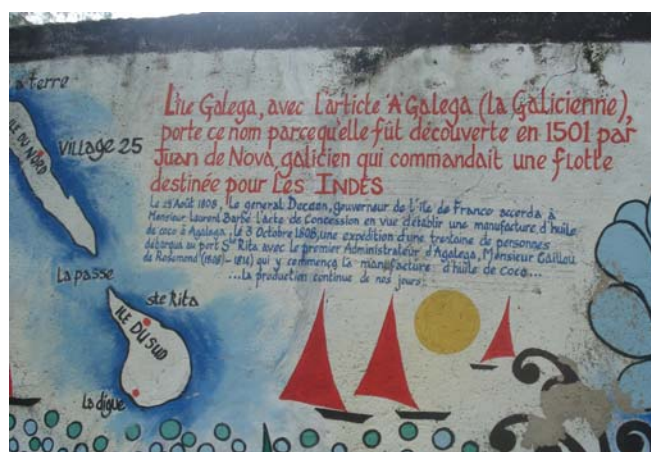 a terre
ILE DU NORD
Village 25
La passe
ste Rita
ILE DU SUD
La digue
L'ile Galega, avec l'articte "A" Galega (la Galicienne),
porte ce nom parcequ'elle fût découverte en 1501 par
Juan de Nova, galicien qui commandait une flotte
destinée pour Les INDES
Le 23 Août 1808, le general Decean, gouverneur de l'île de France accorda à
Monsieur Laurent Barbé l'acte de Concession en vue d'établir une manufacture d'huile
de coco à Agalega, le 3 Octobre 1808, une expédition d'une trentaine de personnes
débarqua au port Ste Rita avec le premier Administrateur d'Agalega, Monsieur Caillou
de Rosemond (1808-) qui y commença la manufacture d'huile de coco...
...La production continue de nos jours.